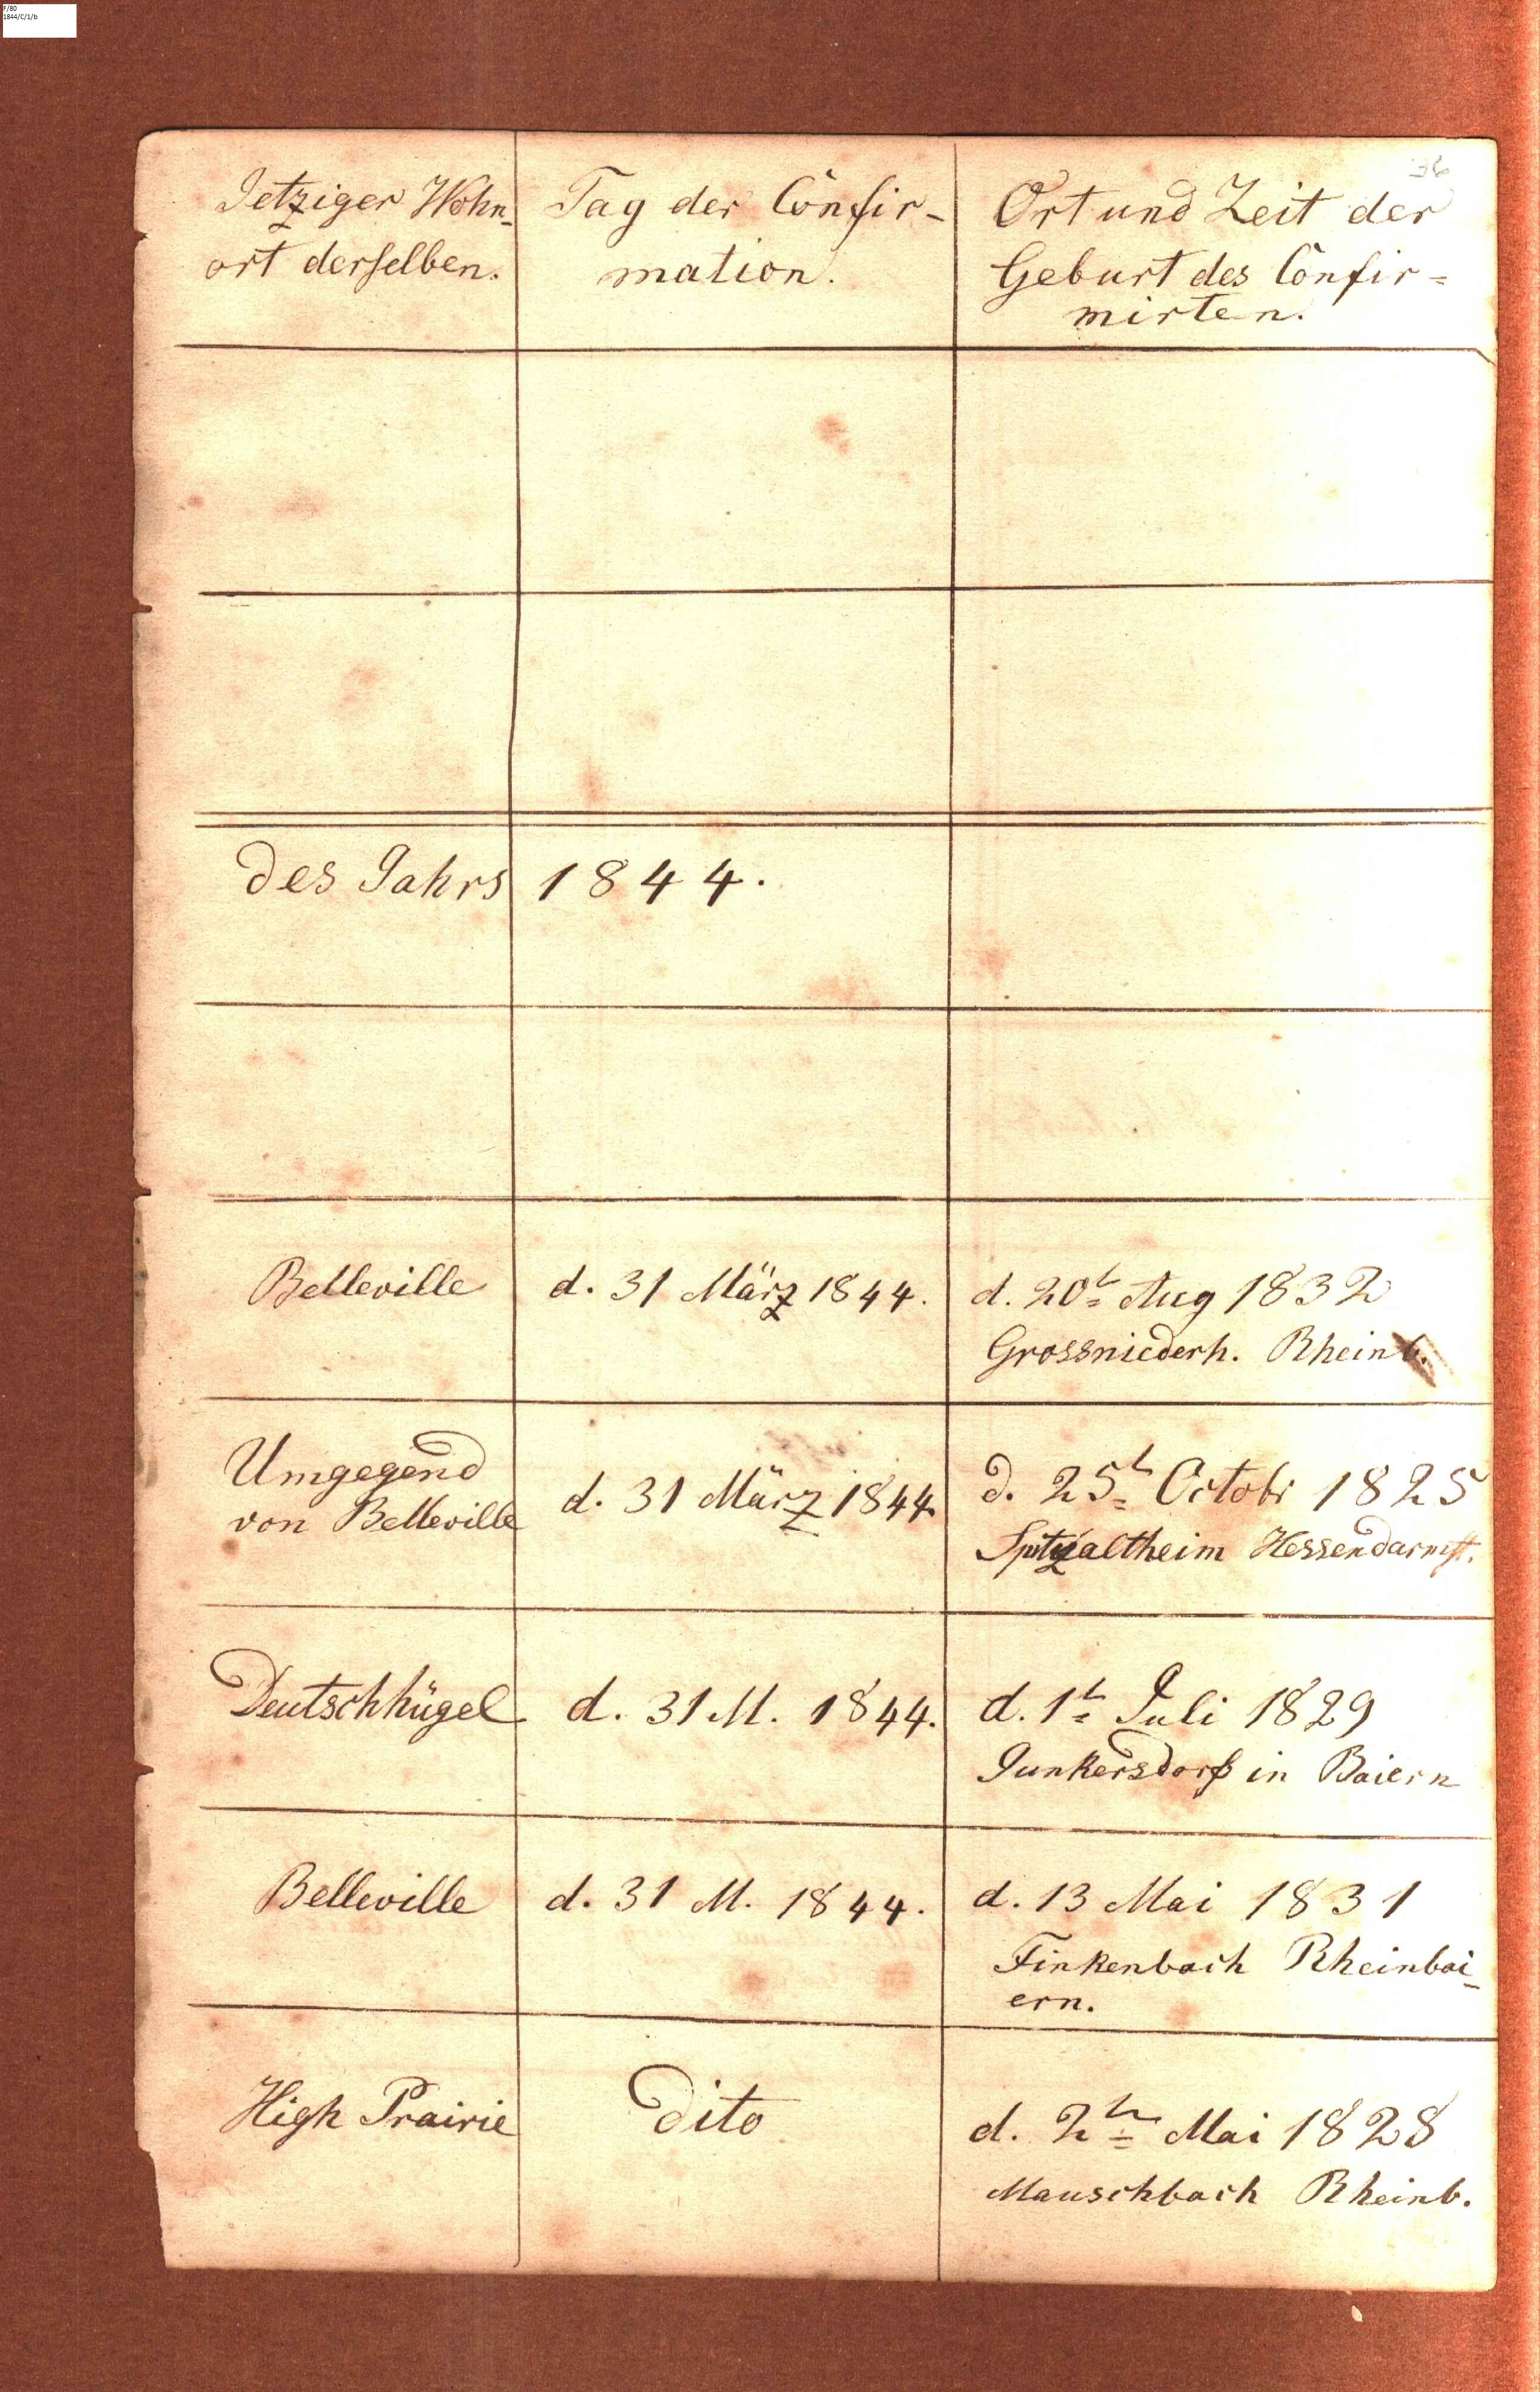 F/80
1844/C/1/b
Jetziger Wohn-
ort derselben.
Tag der Confir-
mation.
Ort und Zeit der
Geburt des Confir=
mirten.
des Jahrs 1844.
Belleville
d. 31 März 1844.
d. 20t Aug 1832
Grossniederh. Rheinb.
Umgegend
von Belleville
d. 31 März 1844
d. 25t Octobr 1825
Spitzaltheim Hessendarmst.
Deutschhügel
d. 31 M. 1844.
d. 1t Juli 1829
Junkersdorf in Baiern
Belleville
d. 31 M. 1844.
d. 13 Mai 1831
Finkenbach Rheinbai-
ern.
High Prairie
dito
d. 2tn Mai 1828
Mauschbach Rheinb.